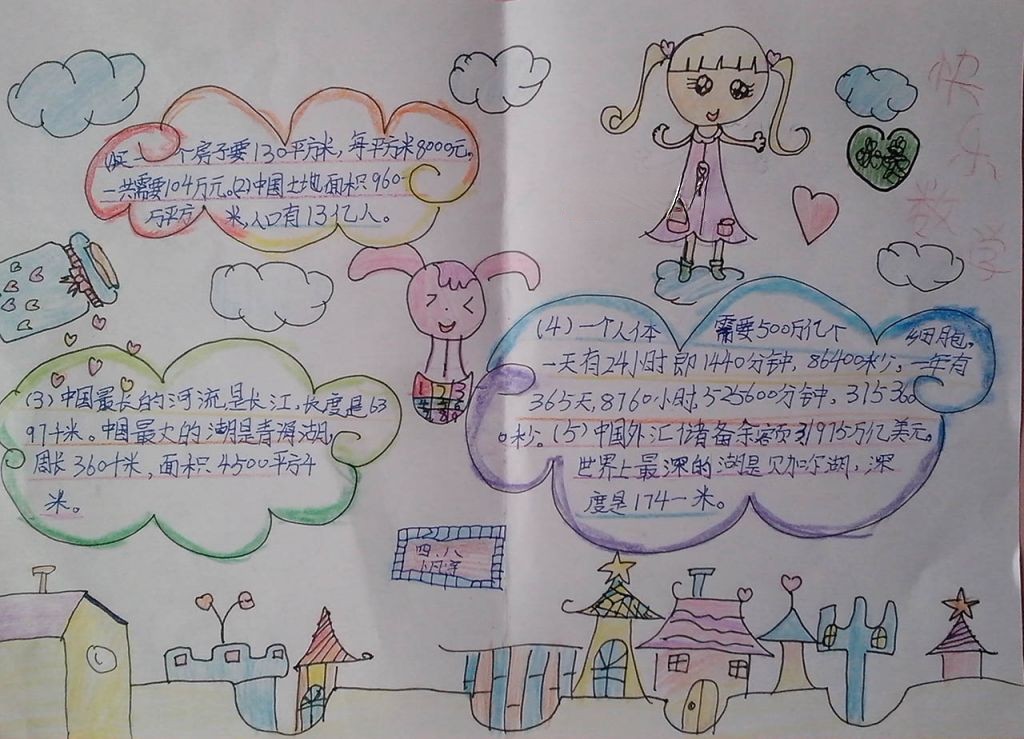 快乐数学
一个房子要130平方米，每平方米8000元。
一共需要104万元。(2)中国土地面积960
万平方米，人口有13亿人。
(3)中国最长的河流是长江，长度是63
97千米。中国最大的湖是青海湖，
周长360千米，面积4500平方千
米。
(4)一个人体需要500万亿个细胞。
一天有24小时即1440分钟，86400秒，一年有
365天，8760小时，525600分钟，315360
0秒。(5)中国外汇储备余额31975万亿美元。
世界上最深的湖是贝加尔湖，深
度是174一米。
四、八